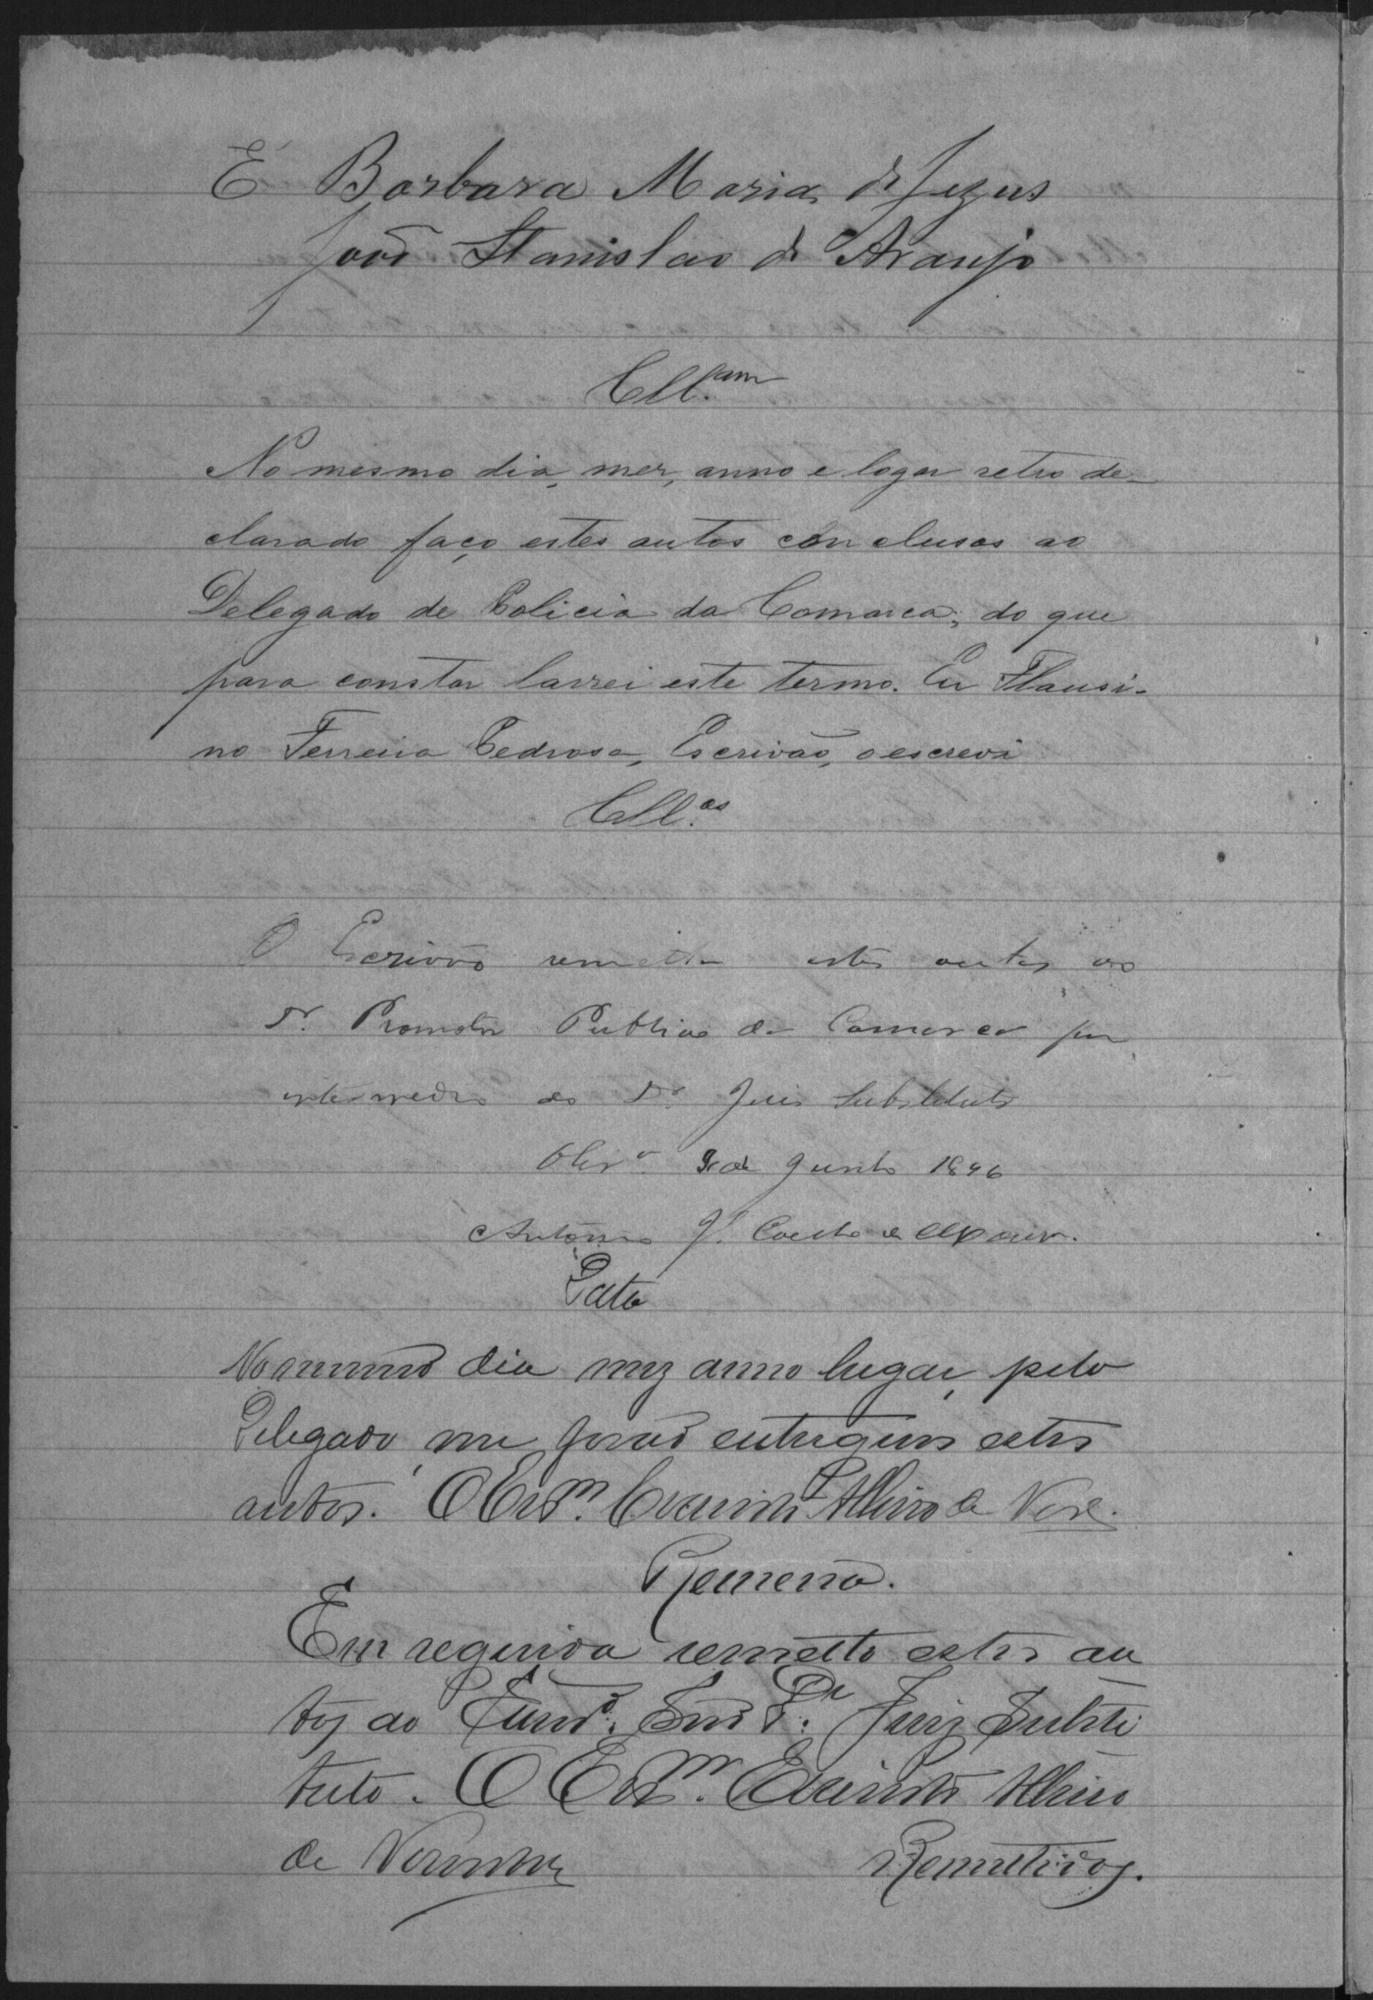 E Barbara Maria de Jezus
João Stanislao de Araujo
Cll.am
No mesmo dia, mez, anno e logar retro de-
clarado faço estes autos conclusos ao
Delegado de Policia da Comarca; do que
para constar lavrei este termo. Eu Flausi-
no Ferreira Pedrosa, Escrivão, o escrevi
Cll.os
O Escrivão remetta estes autos ao
Dr. Promotor Publico da Comarca por
intermedio do Dr. Juis Substituto
Olivª 9 de Junho 1896
Antonio J. Coelho de
Data
No mesmo dia mez anno lugar, pelo
Delegado me forão entregues estes
autos. O Escm.
Remessa.
Em seguida remetto estes au
tos ao Dr. Juiz Substi
tuto. O Escm.
de Remettidos.